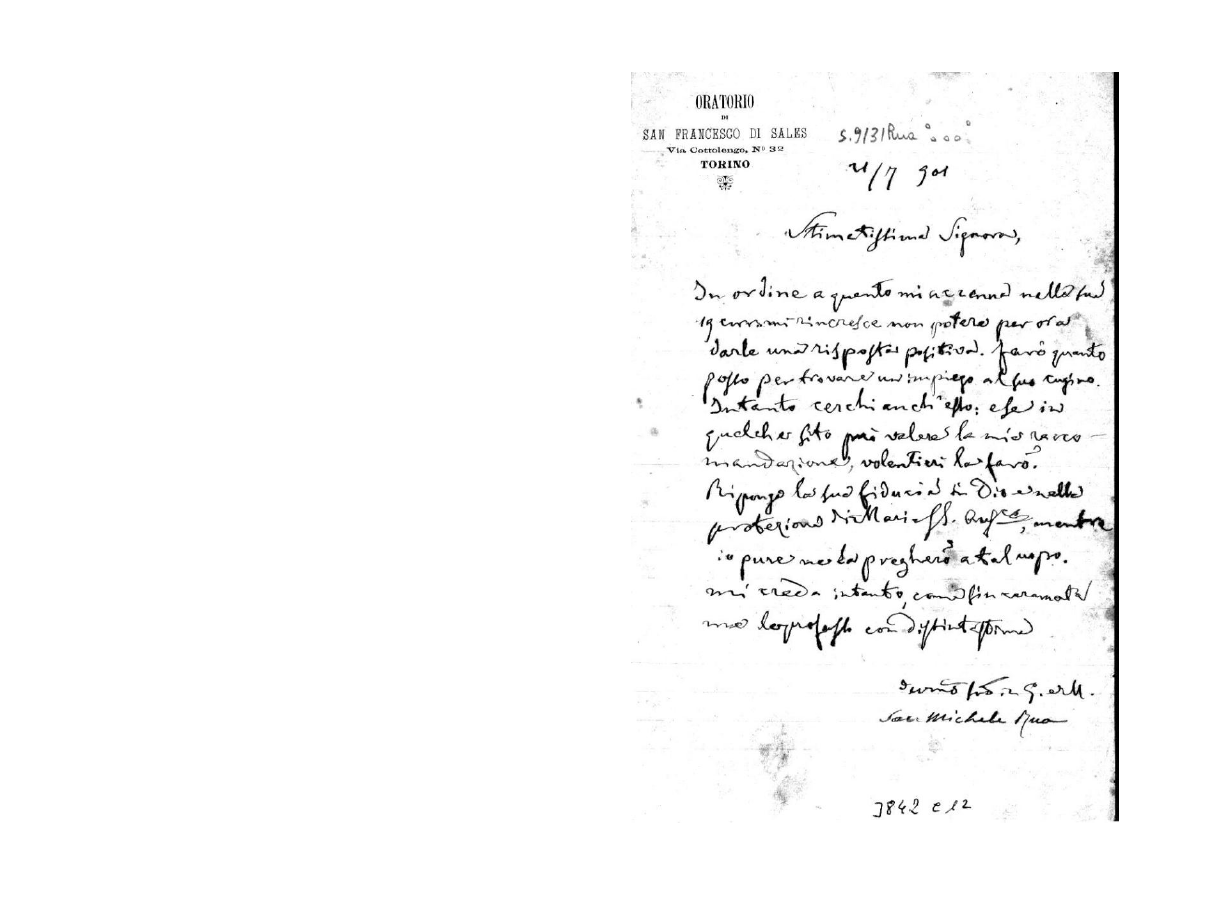 ORATORIO
DI
SAN FRANCESCO DI SALES
Via Cottolengo, N° 32
TORINO
S.9131 Rua
21/7 901
Stimatissima Signora,
In ordine a quanto mi accenna nella sua
19 corr. mi rincresce non potere per ora
darle una risposta positiva. Farò quanto
posso per trovare un impiego al suo cugino.
Intanto cerchi anch'esso: e se in
qualche sito può valere la mia racco-
mandazione, volentieri la farò.
Riponga la sua fiducia in Dio e nella
protezione di Maria SS. Aus.ce, mentre
io pure ne la pregherò a tal uopo.
Mi creda intanto, come sinceramente
me le professo con distinta stima
Devmo in G. e M.
Sac. Michele Rua
3842 C 12